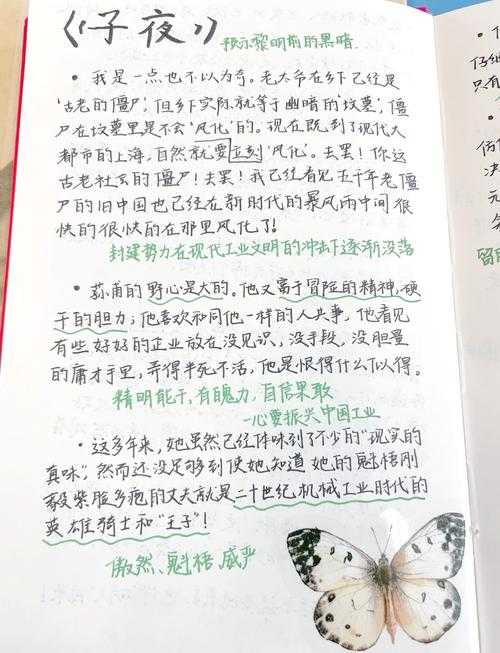 《子夜》预示黎明前的黑暗.
• 我是一点也不以为奇。老太爷在乡下已经是
'古老的僵尸',但乡下实际就等于幽暗的'坟墓',僵
尸在坟墓里是不会'风化'的。现在既到了现代大
都市的上海,自然就要立刻'风化'。去罢!你这
古老社会的僵尸!去罢!我已经看见五千年老僵
尸的旧中国也已经在新时代的暴风雨中间很
快的很快的在那里风化了!
封建势力在现代工业文明的冲击下逐渐没落
• 荪甫的野心是大的。他又富于冒险的精神,硬
干的胆力;他喜欢和同他一样的人共事,他看见
有些好好的企业放在没见识,没手段,没胆量
的庸才手里,弄得半死不活,他是恨得什么似得。
精明能干,有魄力,自信果敢
一心要振兴中国工业
• 这多年来,她虽然已经体味到了不少的"现实的
真味",然而还没足够到使她知道她的魁梧刚
毅紫脸多疱的丈夫就是二十世纪机械工业时代的
英雄骑士和"王子"!
傲然、魁梧 威严
仔细
只有
仿
决
元
留